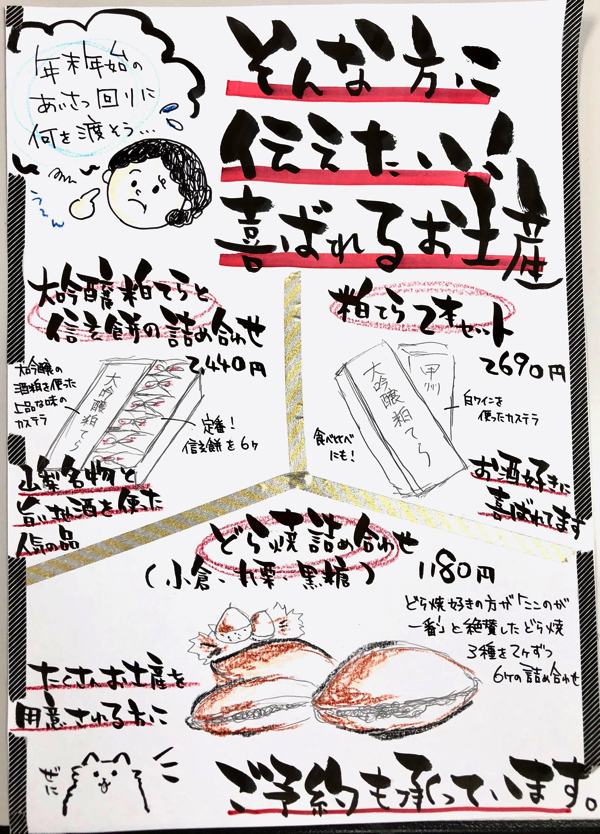 年末年始の
あいさつ回りに
何を渡そう…
うーん
そんな方に
伝えたい!!
喜ばれるお土産
大吟醸粕てらと
信玄餅の詰め合わせ
2,440円
大吟醸の
酒粕を使った
上品な味の
カステラ
大吟醸粕てら
定番!
信玄餅を6ヶ
山梨名物と
旨い地酒を使った
人気の品
粕てら2本セット
2690円
大吟醸粕てら
甲州
白ワインを
使ったカステラ
食べ比べ
にも!
お酒好きに
喜ばれてます
どら焼詰め合わせ
(小倉・丸栗・黒糖)
1180円
どら焼好きの方が「ここのが
一番」と絶賛したどら焼
3種を2ヶずつ
6ヶの詰め合わせ
たくさんお土産を
用意される方に
ぜに
ご予約も承っています。